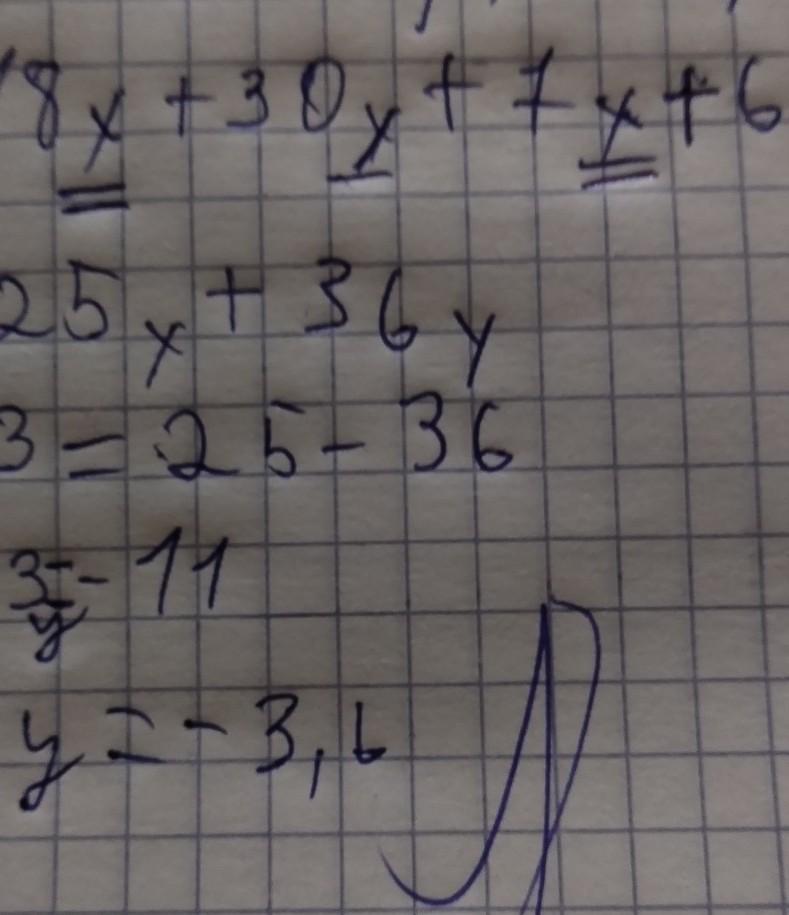 18x + 30y + 7x + 6
25x + 36y
3 = 25 - 36
3/y = - 11
y = - 3,6